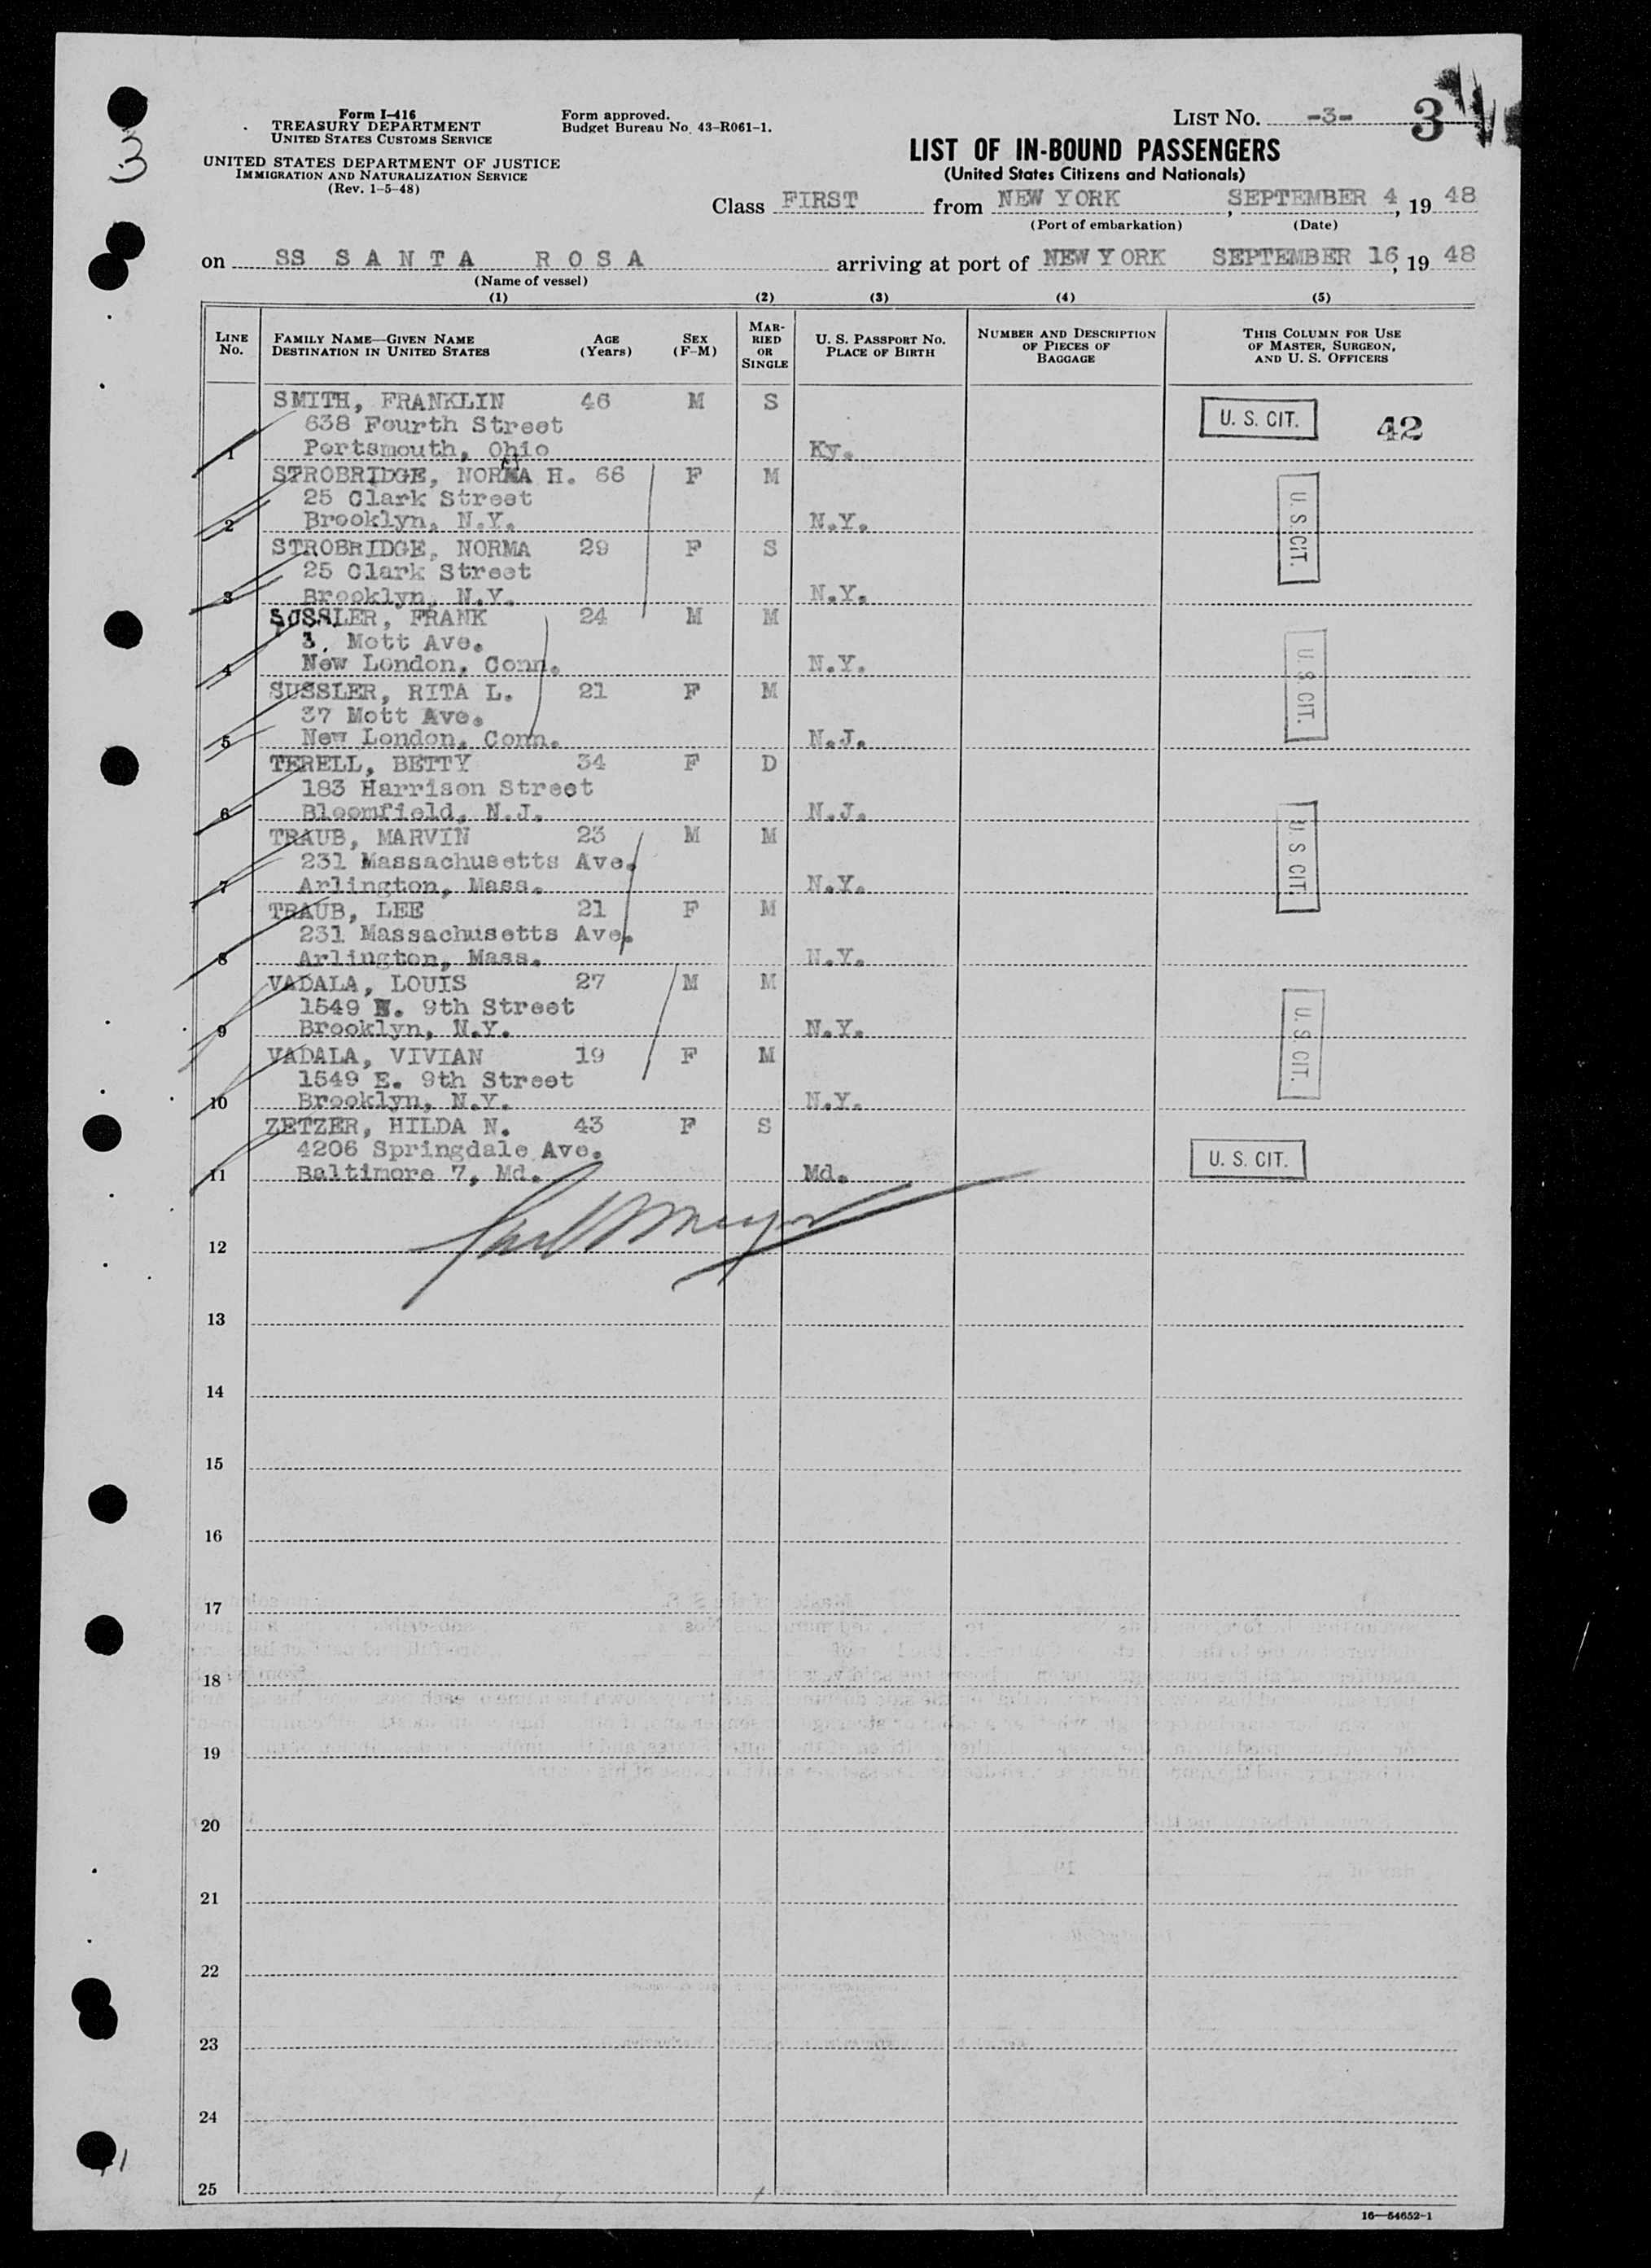 Form I-416
TREASURY DEPARTMENT
UNITED STATES CUSTOMS SERVICE
UNITED STATES DEPARTMENT OF JUSTICE
IMMIGRATION AND NATURALIZATION SERVICE
(Rev. 1-5-48)
Form approved.
Budget Bureau No. 43-R061-1.
LIST NO. -3- 3
LIST OF IN-BOUND PASSENGERS
(United States Citizens and Nationals)
3
Class FIRST from NEW YORK, SEPTEMBER 4, 19 48
(Port of embarkation) (Date)
on SS SANTA ROSA arriving at port of NEW YORK SEPTEMBER 16, 19 48
(Name of vessel)
(1) (2) (3) (4) (5)
LINE No. FAMILY NAME—GIVEN NAME DESTINATION IN UNITED STATES AGE (Years) SEX (F-M) MARRIED OR SINGLE U. S. PASSPORT NO. PLACE OF BIRTH NUMBER AND DESCRIPTION OF PIECES OF BAGGAGE THIS COLUMN FOR USE OF MASTER, SURGEON, AND U. S. OFFICERS
SMITH, FRANKLIN 46 M S U. S. CIT. 42
638 Fourth Street
1 Portsmouth, Ohio Ky.
STROBRIDGE, NORMA H. 66 F M
25 Clark Street U. S. CIT.
2 Brooklyn, N.Y. N.Y.
STROBRIDGE, NORMA 29 F S
25 Clark Street
3 Brooklyn, N.Y. N.Y.
SUSSLER, FRANK 24 M M
3. Mott Ave. U. S. CIT.
4 New London, Conn. N.Y.
SUSSLER, RITA L. 21 F M
37 Mott Ave.
5 New London, Conn. N.J.
TERELL, BETTY 34 F D
183 Harrison Street
6 Bloomfield, N.J. N.J.
TRAUB, MARVIN 23 M M
231 Massachusetts Ave. U. S. CIT.
7 Arlington, Mass. N.Y.
TRAUB, LEE 21 F M
231 Massachusetts Ave.
8 Arlington, Mass. N.Y.
VADALA, LOUIS 27 M M
1549 E. 9th Street U. S. CIT.
9 Brooklyn, N.Y. N.Y.
VADALA, VIVIAN 19 F M
1549 E. 9th Street
10 Brooklyn, N.Y. N.Y.
ZETZER, HILDA N. 43 F S
4206 Springdale Ave. U. S. CIT.
11 Baltimore 7, Md. Md.
12
13
14
15
16
17
18
19
20
21
22
23
24
25
16—54652-1